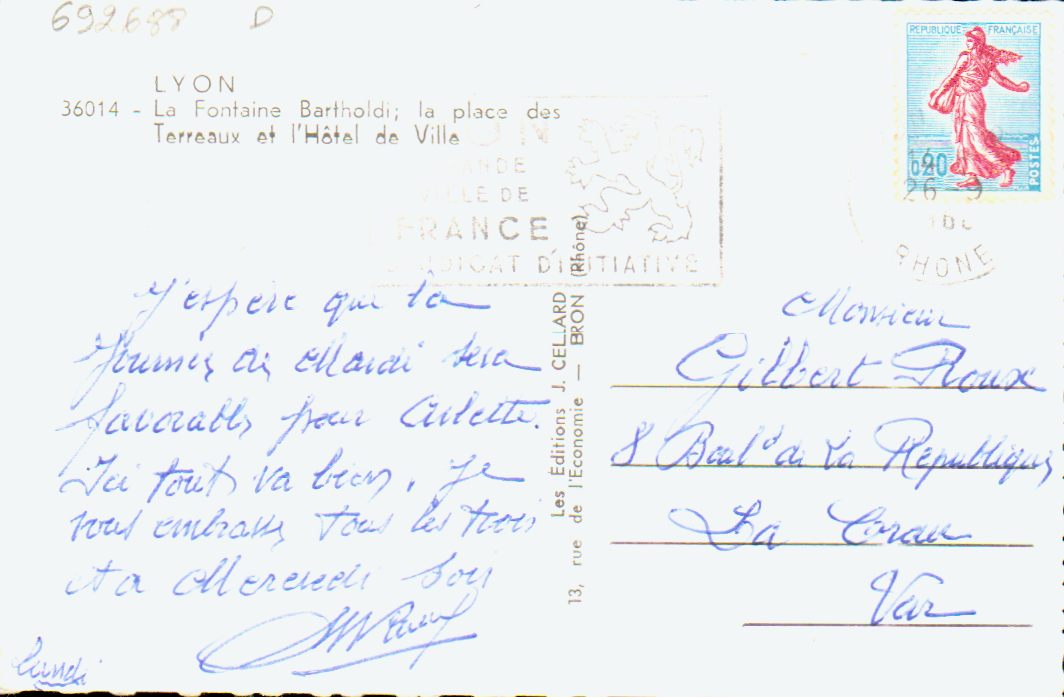 692688 D
LYON
36014 - La Fontaine Bartholdi; la place des
Terreaux et l'Hôtel de Ville
REPUBLIQUE FRANÇAISE
0,20
POSTES
26 - 9
RHONE
VILLE DE
FRANCE
SYNDICAT D'INITIATIVE
J'espère que la
Journée de Mardi sera
favorable pour Arlette.
Ici tout va bien, Je
vous embrasse tous les trois
et a Mercredi soir
lundi
Les Éditions J. CELLARD
13, rue de l'Economie — BRON (Rhône)
Monsieur
Gilbert Roux
8 Boul^d de La République
La Crau
Var